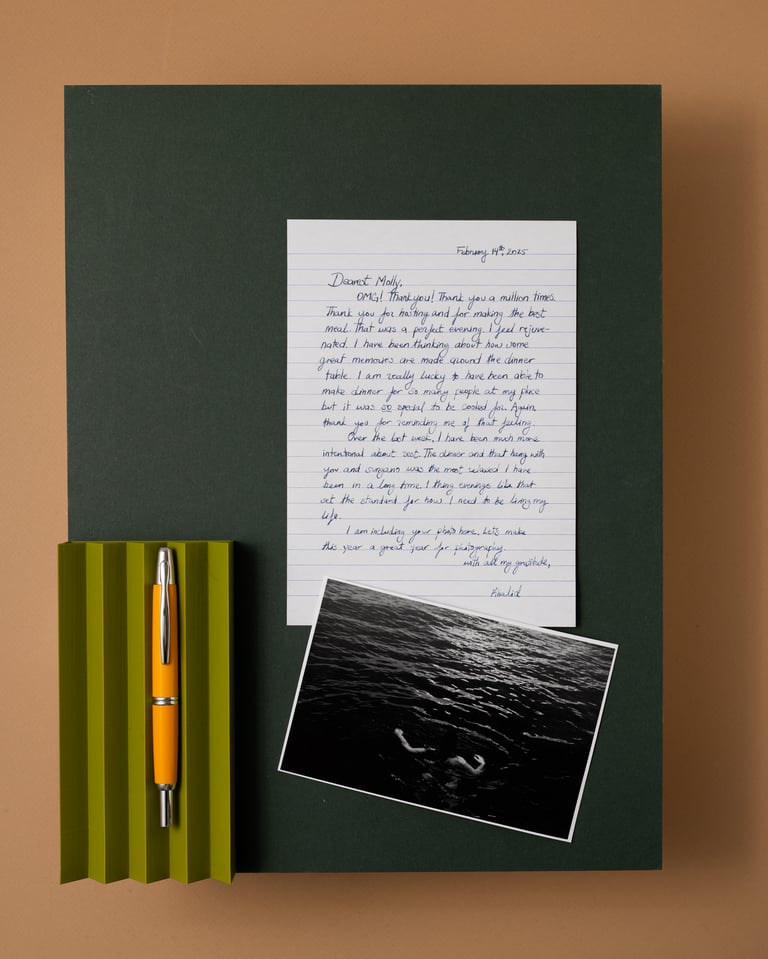 February 14th, 2025
Dearest Molly,
OMG! Thank you! Thank you a million times.
Thank you for hosting and for making the best
meal. That was a perfect evening. I feel rejuve-
nated. I have been thinking about how some
great memories are made around the dinner
table. I am really lucky to have been able to
make dinner for so many people at my place
but it was so special to be cooked for. Again,
thank you for reminding me of that feeling.
Over the last week, I have been much more
intentional about rest. The dinner and that hang with
you and was the most relaxed I have
been in a long time. I thing evenings like that
set the standard for how I need to be living my
life.
I am including your photo here. Let's make
this year a great year for photography.
with all my gratitude,
Khalid